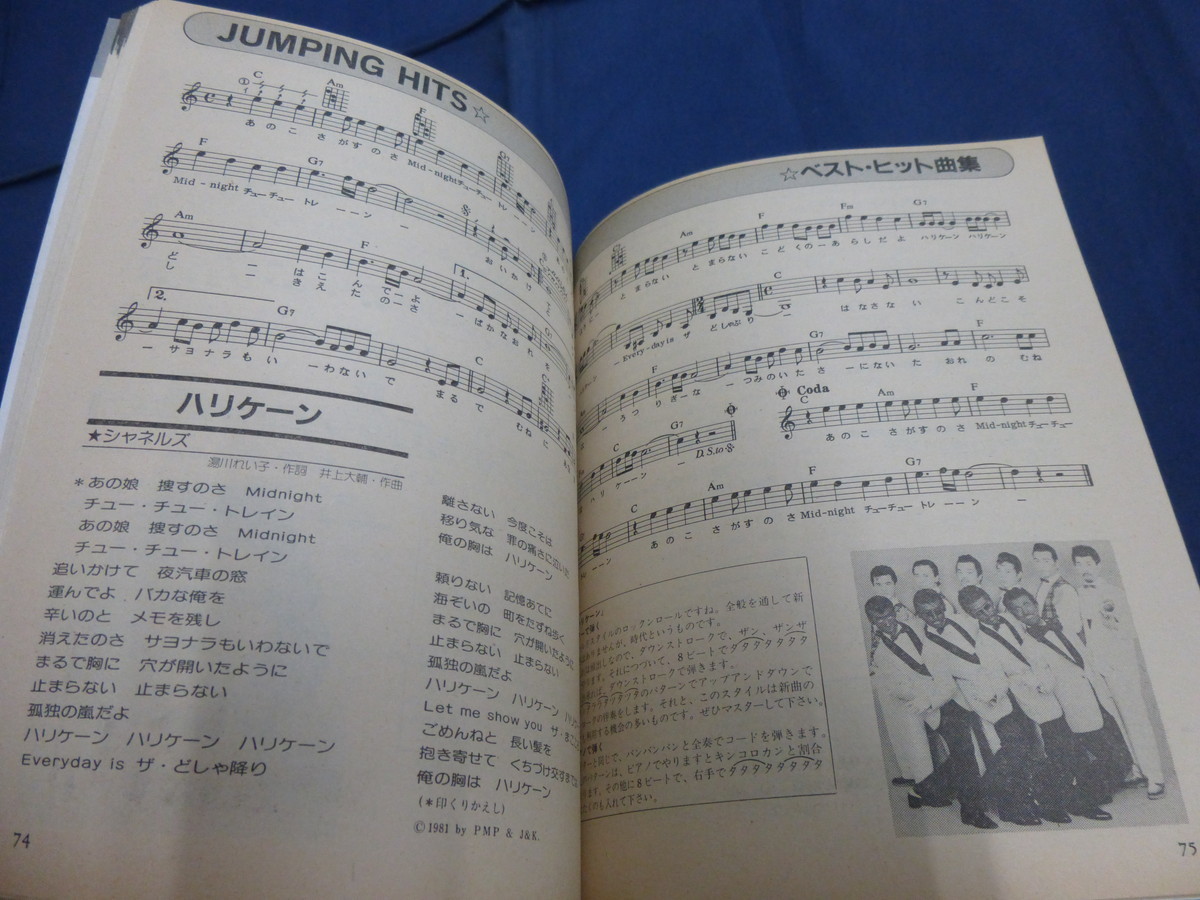 JUMPING HITS☆
C
Am
F
G7
あのこ さがすのさ Mid-nightチューチュー トレーーーン
F
G7
Mid-night チューチュー トレ ーーン ー おいかけ
Am
F
1.
ど ー はこ んでーよ ーばかなおれ
し ー きえ たのーさ
2.
G7
C
ー サヨナラもい ーわないで まるで むねに
ハリケーン
★シャネルズ
湯川れい子・作詞 井上大輔・作曲
*あの娘 捜すのさ Midnight
チュー・チュー・トレイン
あの娘 捜すのさ Midnight
チュー・チュー・トレイン
追いかけて 夜汽車の窓
運んでよ バカな俺を
辛いのと メモを残し
消えたのさ サヨナラもいわないで
まるで胸に 穴が開いたように
止まらない 止まらない
孤独の嵐だよ
ハリケーン ハリケーン ハリケーン
Everyday is ザ・どしゃ降り
離さない 今度こそは
移り気な 罪の痛さに
俺の胸は ハリケーン
頼りない 記憶あてに
海ぞいの 町をたずね歩く
まるで胸に 穴が開いたように
止まらない 止まらない
孤独の嵐だよ
ハリケーン ハリケーン
Let me show you ザ・まごころ
ごめんねと 長い髪を
抱き寄せて くちづけ交す
俺の胸は ハリケーン
(*印くりかえし)
©1981 by PMP & J&K.
74
☆ベスト・ヒット曲集
Am
F
Fm
G7
とまらない とまらない こどくのーあらしだよ ハリケーン ハリケーン
C
ーEvery-day is ザ どしゃぶり ー はなさない こんどこそ
F
G7
F
ー うつりぎーな ーつみのいたさ ーにないた おれの むね
C
G7
D.S.to
Coda
C
Am
F
ハリ ケーン ー あのこ さがすのさ Mid-nightチューチュー
C
Am
F
G7
ーーン あのこ さがすのさ Mid-night チューチュー トレ ーーン ー
スタイルのロックンロールですね。全般を通して新
ありませんが、時代というものです。
なので、ダウンストロークで、ザン、ザンザ
ます。それにつづいて、8ビートでダダダダダダダ
ダウンストロークで弾きます。
のパターンでアップアンドダウンで
の伴奏をします。それと、このスタイルは新曲の
用する機会の多いものです。ぜひマスターして下さい。
で弾く
ーと同じで、バンバンバンと全奏でコードを弾きます。
パターンは、ピアノでやりますとキンコロカンと割合
ます。その他に8ビートで、右手でダダダダダダダダ
ものも入れて下さい。
75